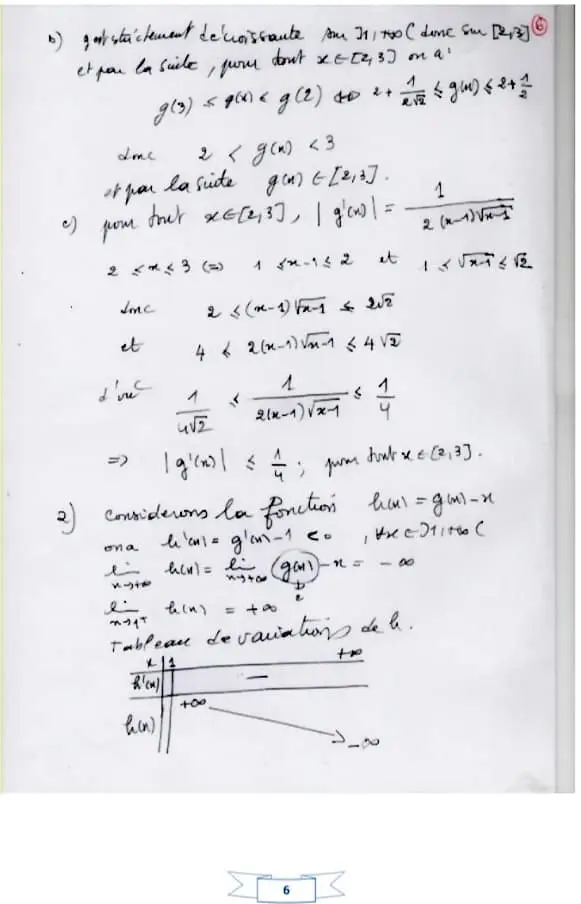 b) g est strictement décroissante sur ]1,+∞( donc sur [2,3] 6
et par la suite, pour tout x ∈ [2,3] on a:
g(3) ≤ g(x) ≤ g(2) ⇔ 2 + 1/2√2 ≤ g(x) ≤ 2 + 1/2
donc 2 < g(x) < 3
et par la suite g(x) ∈ [2,3].
c) pour tout x ∈ [2,3], |g'(x)| = 1/2(x-1)√x-1
2 ≤ x ≤ 3 (=) 1 ≤ x-1 ≤ 2 et 1 ≤ √x-1 ≤ √2
donc 2 ≤ (x-1)√x-1 ≤ 2√2
et 4 ≤ 2(x-1)√x-1 ≤ 4√2
d'où 1/4√2 ≤ 1/2(x-1)√x-1 ≤ 1/4
=> |g'(x)| ≤ 1/4 ; pour tout x ∈ [2,3].
2) considerons la fonction h(x) = g(x) - x
on a h'(x) = g'(x) - 1 < 0 , ∀x ∈ ]1,+∞(
lim x→+∞ h(x) = lim x→+∞ g(x) - x = -∞
2
lim x→1+ h(x) = +∞
Tableau de variations de h.
x 1 +∞
h'(x) —
h(x) +∞ -∞
6